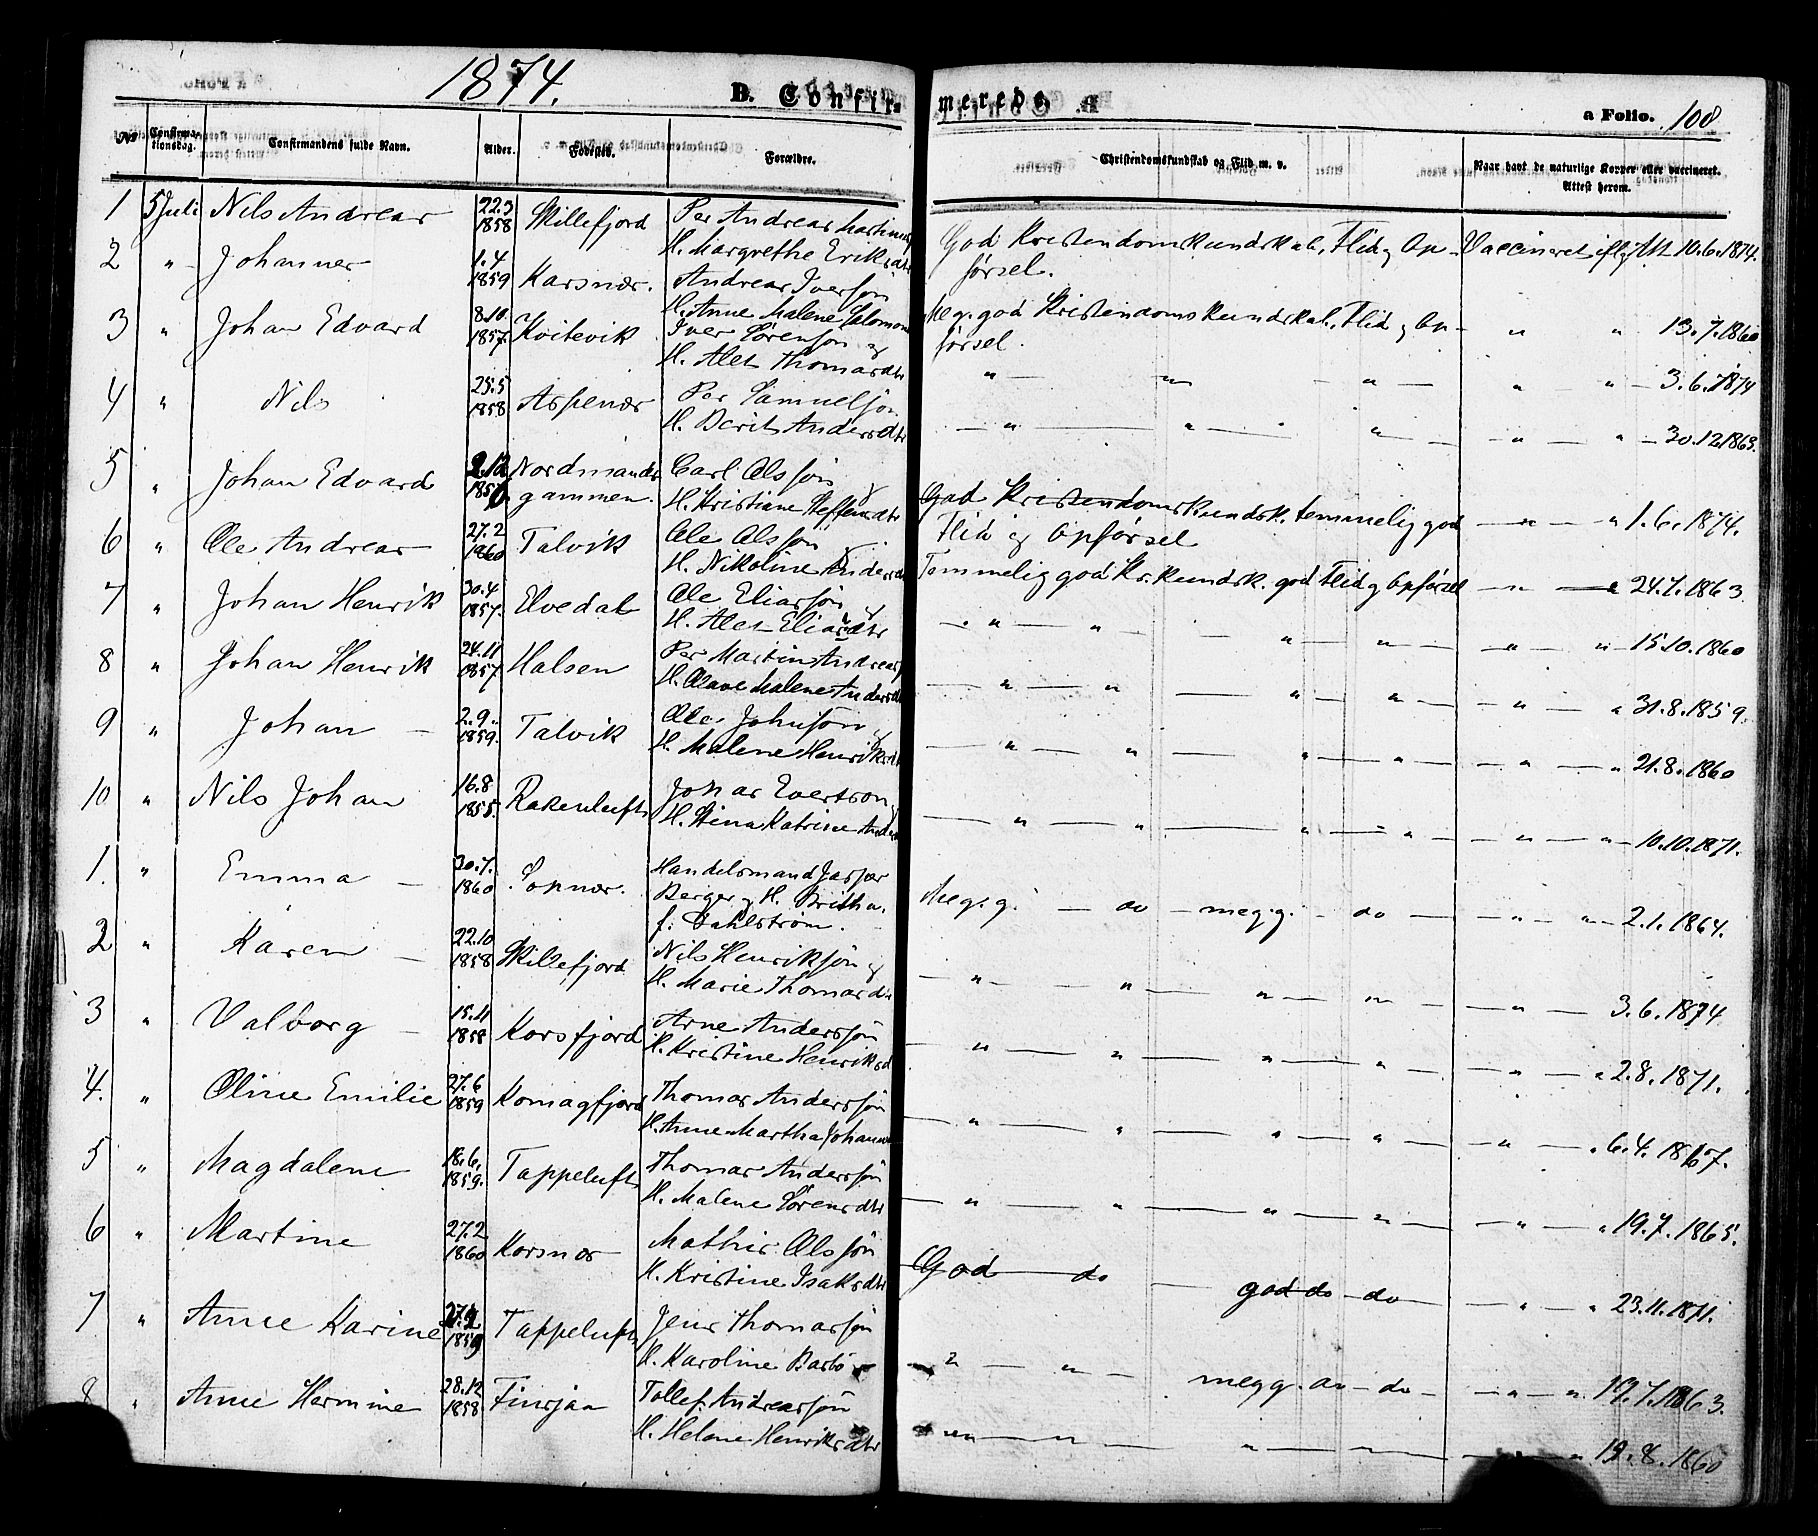 1874.
B. Confir-
merede.
a Folio. 108
No
Confirma-
tionsdag.
Confirmandens fulde Navn.
Alder.
Fødested.
Forældre.
Christendomskundskab og Flid m. v.
Naar havt de naturlige Kopper eller vaccineret.
Attest herom.
1 5 Juli Nils Andreas 22.3 1858 Skillefjord Per Andreas
H. Margrethe Eriksdtr
God Kristendomskundskab, Flid og Op-
førsel.
Vaccineret iflg Att 10.6.1874.
2 " Johannes 1.4 1859 Karsnæs. Andreas Iversøn
H. Anne Malene
Meg. god Kristendomskundskab, Flid og Op-
førsel.
" " 13.7.1860
3 " Johan Edvard 8.10 1857. Kvitevik Iver Sørensøn og
H. Alet Thomasdtr
" " " " " 3.6.1874
4 " Nils 25.5 1858 Aspenæs Per Samuelsøn
H. Berit Andersdtr
" " " " " 30.12.1863.
5 " Johan Edvard 2.12 Nordmands
gammen. Carl Olssøn
H. Kristiane Steffensdtr
God Kristendomskundsk. temmelig god
Flid og Opførsel
" " 1.6.1874.
6 " Ole Andreas 27.2 1860 Talvik Ole Olssøn
H. Nikoline Andersdtr
Temmelig god Kr. kundsk. god Flid og Opførsel
" " 24.7.1863.
7 " Johan Henrik 30.4 1857. Elvedal Ole Eliassøn og
H. Alet Eliasdtr
" " " " " " 15.10.1860
8 " Johan Henrik 24.11 1857 Halsen Per Martin Andreas
H. Olave Malene Andersdtr
" " " " " " 31.8.1859.
9 " Johan 2.9. 1859. Talvik Ole Johnsøn og
H. Malene Henriksdtr
" " " " " " 21.8.1860
10 " Nils Johan 16.8 1855. Rakenluft Jonas Evertson
H. Stina Katrine
" " " " " " 10.10.1871.
1. " Emma 30.7. 1860 Sopnæs. Handelsmand Jasper
Berger og H. Britha
f. Dahlstrøm.
Meg. g. do meg. g. do " " 2.1.1864.
2 " Karen 22.10 1858 Skillefjord Nils Henriksøn og
H. Marie Thomasdtr
" " " " " 3.6.1874
3 " Valborg 15.11 1858 Korsfjord Arne Anderssøn
H. Kristine Henriksd
" " " " " " 2.8.1871.
4. " Oline Emilie 27.6 1859 Komagfjord Thomas Anderssøn
H. Anne Martha
" " " " " " 6.4.1867.
5 " Magdalene 18.6. 1859. Tappeluft Thomas Anderssøn
H. Malene Sørensdtr
" " " " " " 19.7.1865.
6 " Martine 27.2 1860 Korsnæs Mathis Olssøn
H. Kristine Isaksdtr
God do god do do " " 23.11.1871.
7 " Anne Karine 1859 Tappeluft Jens Thomassøn
H. Karoline
" " meg g. do do " " 19.7.1863.
8 " Anne Hermine 28.12 1858 Finsjaa Tollef Andreassøn
H. Helene Henriksdtr
" " " " " " 19.8.1860